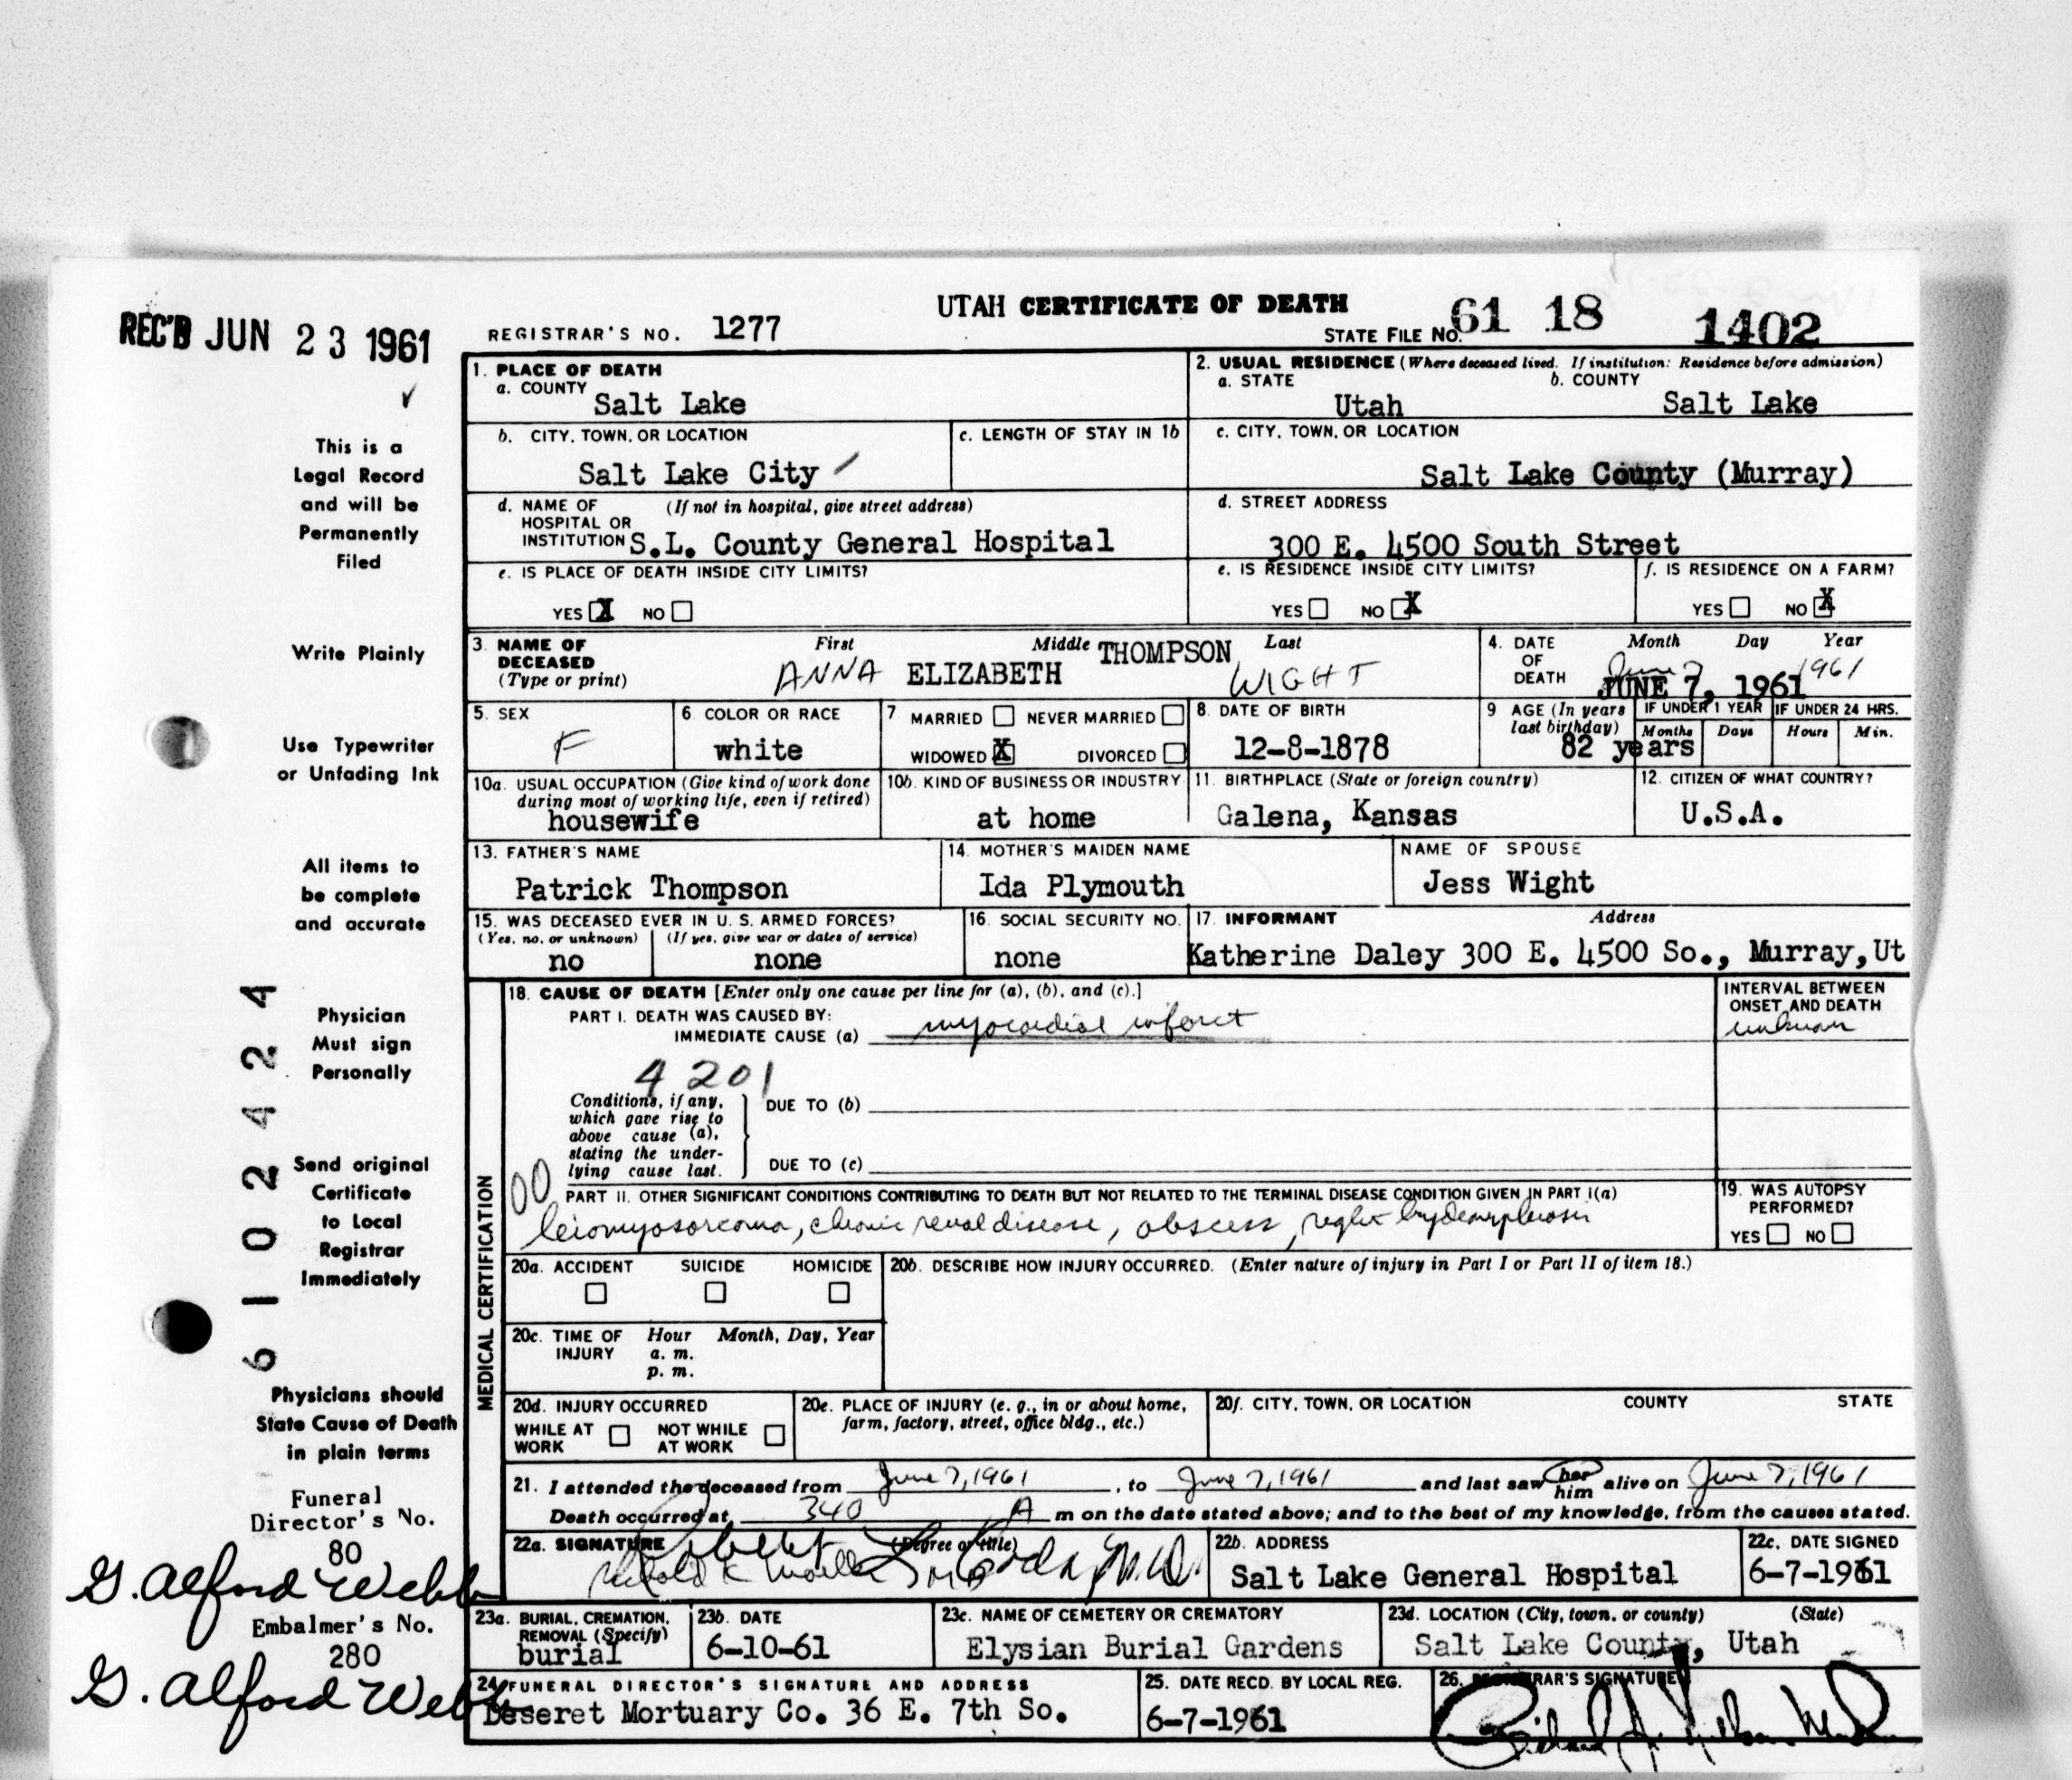 UTAH CERTIFICATE OF DEATH
REC'D JUN 23 1961
REGISTRAR'S NO. 1277
STATE FILE NO. 61 18 1402
This is a
Legal Record
and will be
Permanently
Filed
Write Plainly
Use Typewriter
or Unfading Ink
All items to
be complete
and accurate
Physician
Must sign
Personally
Send original
Certificate
to Local
Registrar
Immediately
Physicians should
State Cause of Death
in plain terms
61024424
Funeral
Director's No.
80
G. Alford Webb
Embalmer's No.
280
G. Alford Webb
1. PLACE OF DEATH
a. COUNTY
Salt Lake
2. USUAL RESIDENCE (Where deceased lived. If institution: Residence before admission)
a. STATE b. COUNTY
Utah Salt Lake
b. CITY, TOWN, OR LOCATION
Salt Lake City
c. LENGTH OF STAY IN 1b
c. CITY, TOWN, OR LOCATION
Salt Lake County (Murray)
d. NAME OF (If not in hospital, give street address)
HOSPITAL OR
INSTITUTION S.L. County General Hospital
d. STREET ADDRESS
300 E. 4500 South Street
e. IS PLACE OF DEATH INSIDE CITY LIMITS?
YES X NO
e. IS RESIDENCE INSIDE CITY LIMITS?
YES NO X
f. IS RESIDENCE ON A FARM?
YES NO X
3. NAME OF DECEASED (Type or print)
First Middle Last
ANNA ELIZABETH THOMPSON WIGHT
4. DATE OF DEATH
Month Day Year
June 7 1961
JUNE 7, 1961
5. SEX
F
6 COLOR OR RACE
white
7 MARRIED NEVER MARRIED
WIDOWED X DIVORCED
8. DATE OF BIRTH
12-8-1878
9 AGE (In years last birthday)
82 years
IF UNDER 1 YEAR
Months Days
IF UNDER 24 HRS.
Hours Min.
10a. USUAL OCCUPATION (Give kind of work done
during most of working life, even if retired)
housewife
10b. KIND OF BUSINESS OR INDUSTRY
at home
11. BIRTHPLACE (State or foreign country)
Galena, Kansas
12. CITIZEN OF WHAT COUNTRY?
U.S.A.
13. FATHER'S NAME
Patrick Thompson
14. MOTHER'S MAIDEN NAME
Ida Plymouth
NAME OF SPOUSE
Jess Wight
15. WAS DECEASED EVER IN U. S. ARMED FORCES?
(Yes, no, or unknown) (If yes, give war or dates of service)
no none
16. SOCIAL SECURITY NO.
none
17. INFORMANT Address
Katherine Daley 300 E. 4500 So., Murray, Ut
MEDICAL CERTIFICATION
18. CAUSE OF DEATH [Enter only one cause per line for (a), (b), and (c).]
PART I. DEATH WAS CAUSED BY:
IMMEDIATE CAUSE (a) myocardial infarct
INTERVAL BETWEEN
ONSET AND DEATH
unknown
4201
Conditions, if any,
which gave rise to
above cause (a),
stating the under-
lying cause last.
DUE TO (b)
DUE TO (c)
00
PART II. OTHER SIGNIFICANT CONDITIONS CONTRIBUTING TO DEATH BUT NOT RELATED TO THE TERMINAL DISEASE CONDITION GIVEN IN PART I(a)
leiomyosarcoma, chronic renal disease, abscess, right
19. WAS AUTOPSY
PERFORMED?
YES NO
20a. ACCIDENT SUICIDE HOMICIDE
20b. DESCRIBE HOW INJURY OCCURRED. (Enter nature of injury in Part I or Part II of item 18.)
20c. TIME OF INJURY
Hour Month, Day, Year
a. m.
p. m.
20d. INJURY OCCURRED
WHILE AT WORK NOT WHILE AT WORK
20e. PLACE OF INJURY (e. g., in or about home,
farm, factory, street, office bldg., etc.)
20f. CITY, TOWN, OR LOCATION COUNTY STATE
21. I attended the deceased from June 7, 1961, to June 7, 1961 and last saw her him alive on June 7, 1961
Death occurred at 340 A m on the date stated above; and to the best of my knowledge, from the causes stated.
22a. SIGNATURE (Degree or title)
M.D.
22b. ADDRESS
Salt Lake General Hospital
22c. DATE SIGNED
6-7-1961
23a. BURIAL, CREMATION,
REMOVAL (Specify)
burial
23b. DATE
6-10-61
23c. NAME OF CEMETERY OR CREMATORY
Elysian Burial Gardens
23d. LOCATION (City, town, or county) (State)
Salt Lake County, Utah
24 FUNERAL DIRECTOR'S SIGNATURE AND ADDRESS
Deseret Mortuary Co. 36 E. 7th So.
25. DATE RECD. BY LOCAL REG.
6-7-1961
26. REGISTRAR'S SIGNATURE